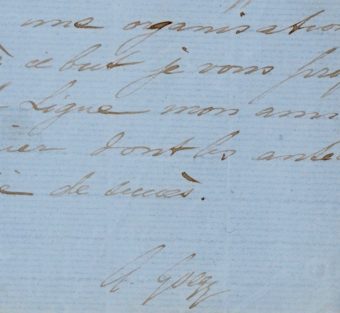 une organisation
ce but je vous prop
Ligue mon ami
dont les anté
de succès.
A. Goegg